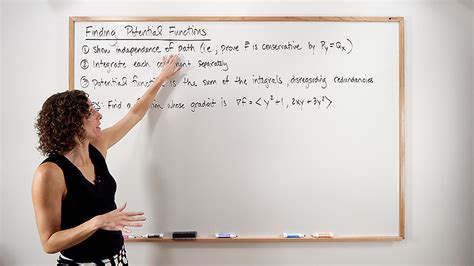 Finding Potential Functions
① show independence of path (i.e., prove F⃗ is conservative by Py = Qx)
② Integrate each component separately
③ Potential function is the sum of the integrals, disregarding redundancies
Find a whose gradient is ∇f = < y² + 1, 2xy + 3y² >